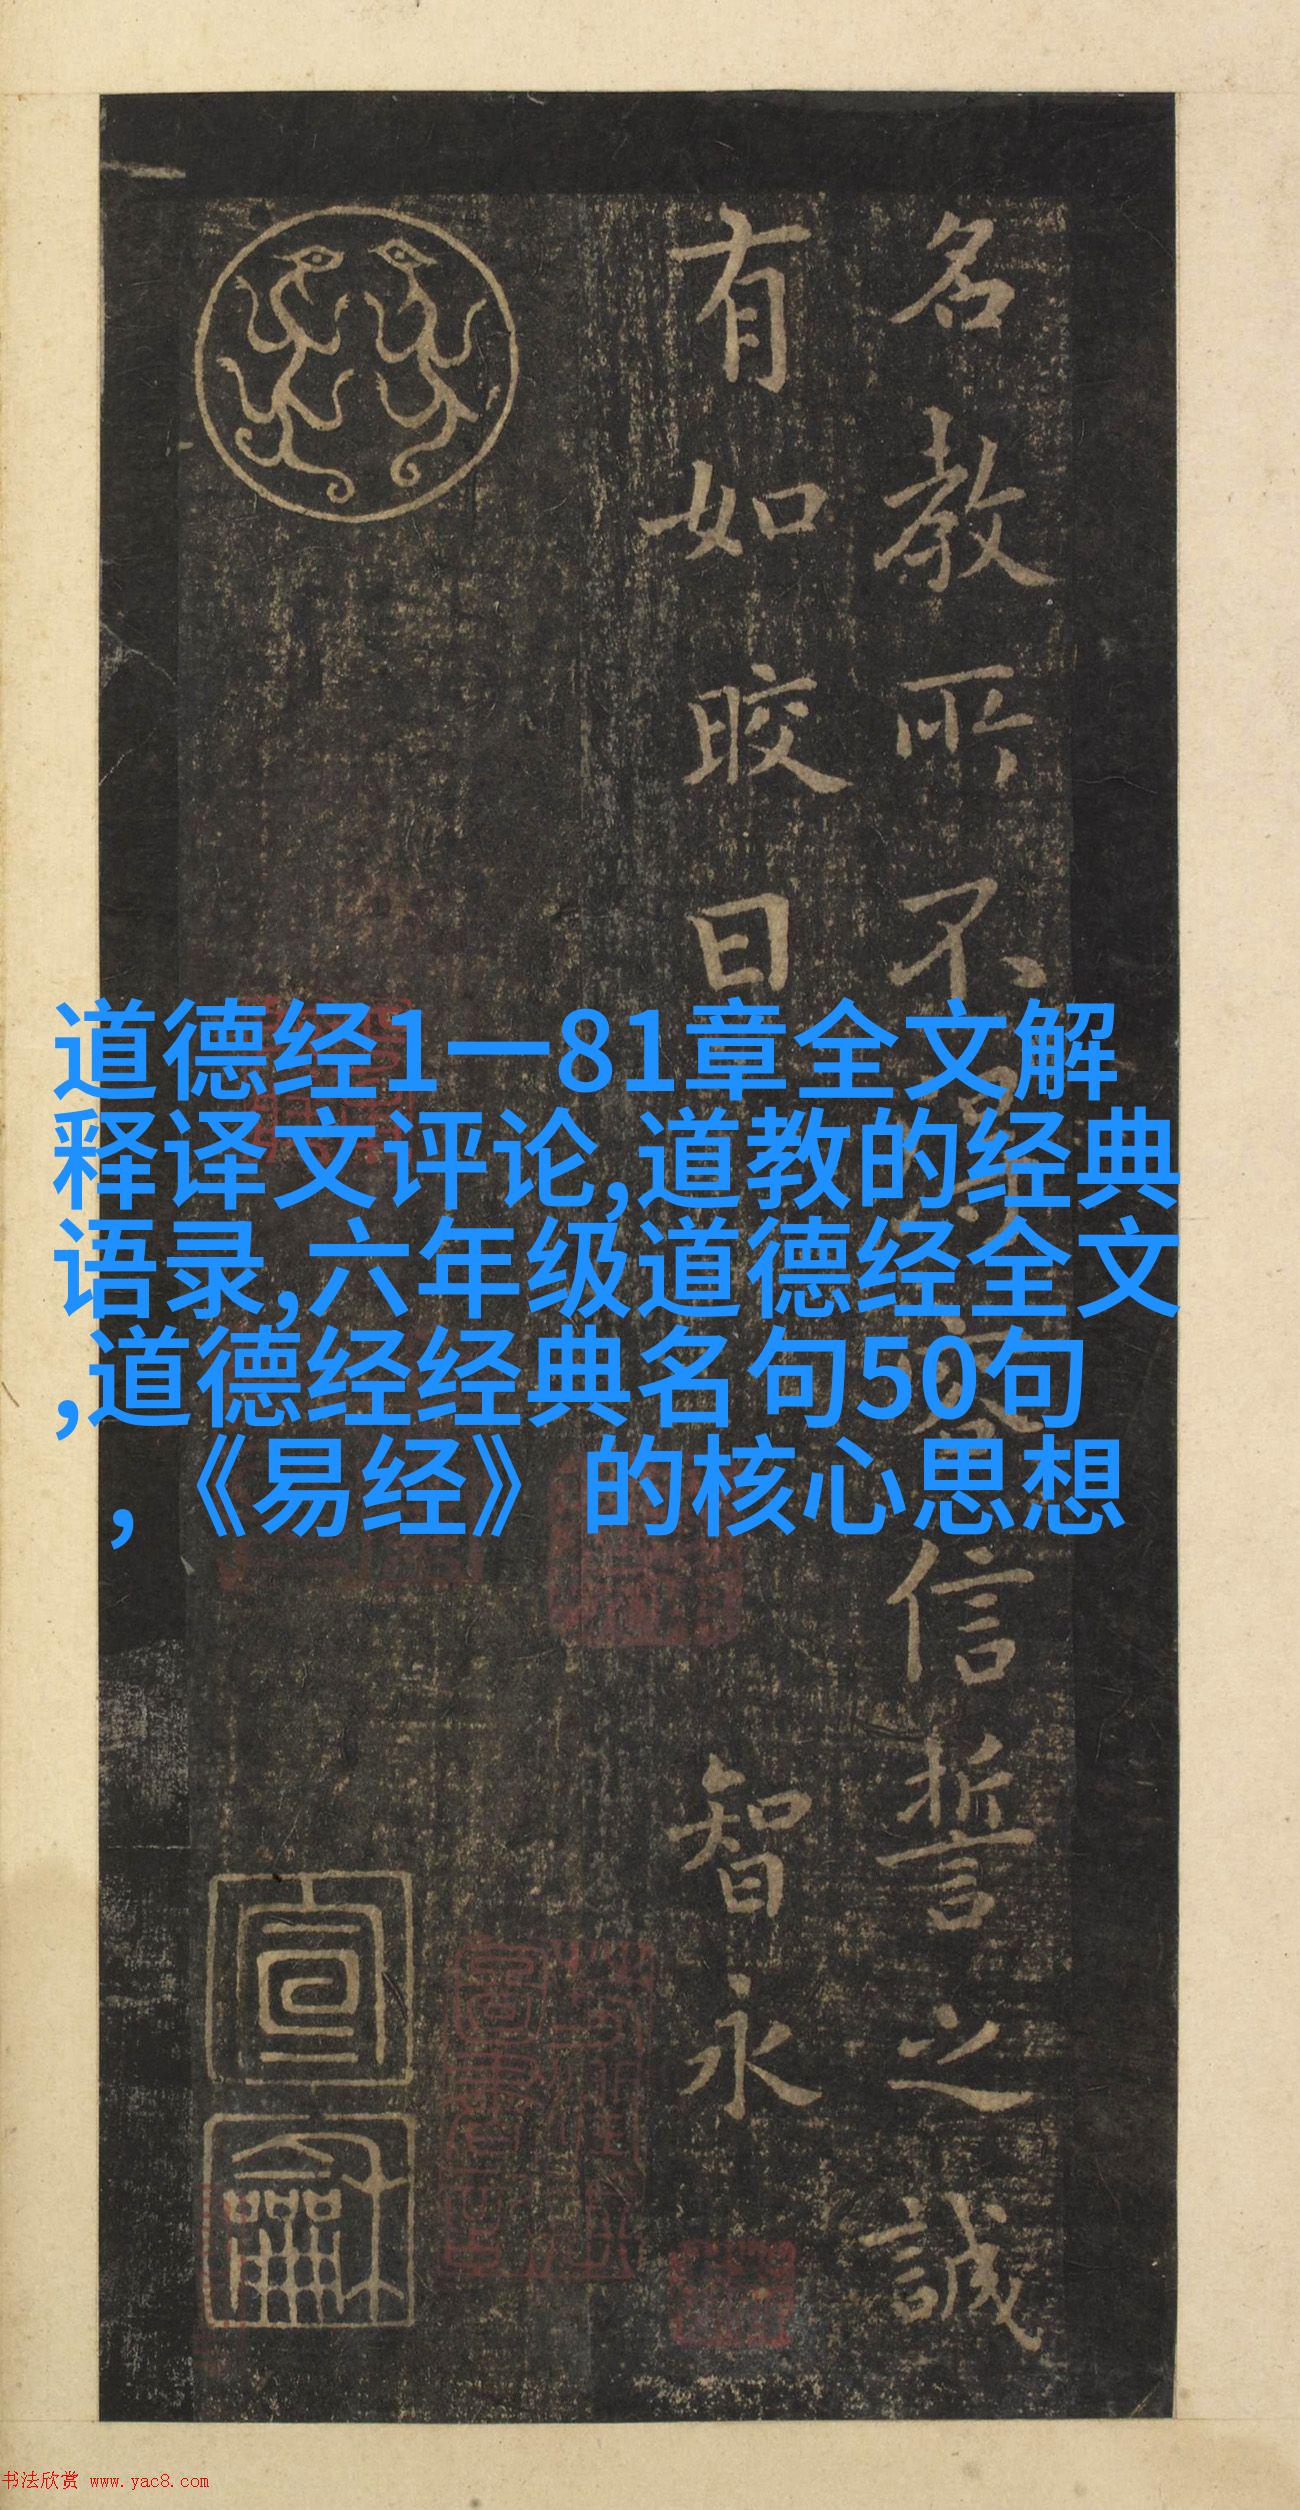 名教所不信誓之誠
有如晈日
智永
宣
龢
道德经1一81章全文解
释译文评论,道教的经典
语录,六年级道德经全文
,道德经经典名句50句
,《易经》的核心思想
书法欣赏 www.yac8.com